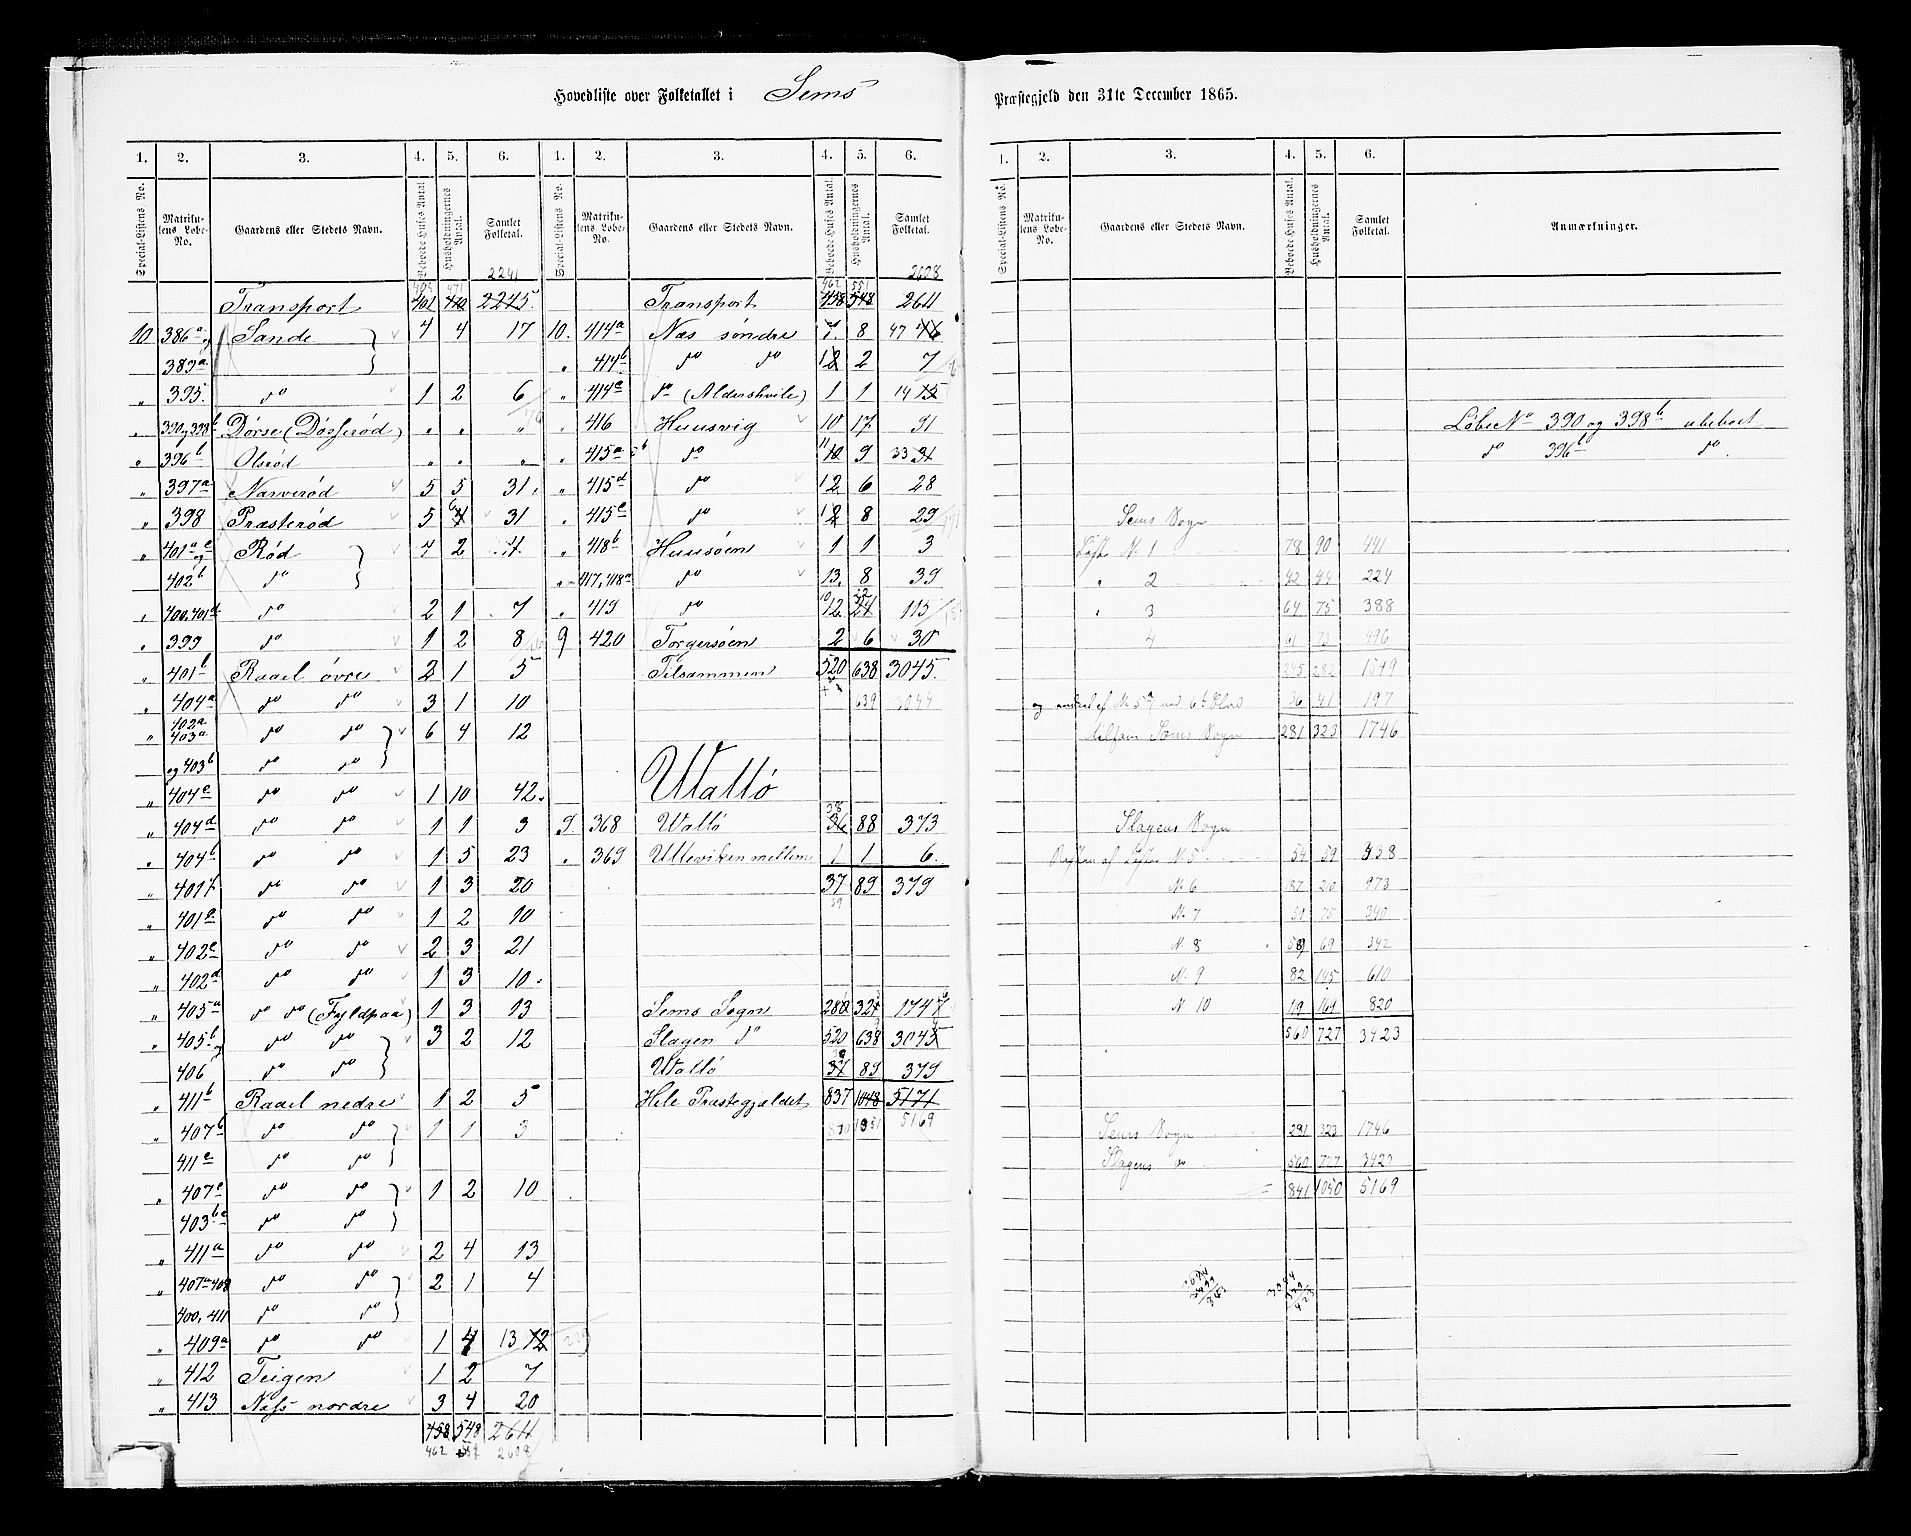 Hovedliste over Folketallet i Sems
1. 2. 3. 4. 5. 6. 1. 2. 3. 4. 5. 6.
Special-Listens No. Matrikulens Løbe-No. Gaardens eller Stedets Navn. Beboede Huses Antal. Husholdningernes Antal. Samlet Folketal. Special-Listens No. Matrikulens Løbe-No. Gaardens eller Stedets Navn. Beboede Huses Antal. Husholdningernes Antal. Samlet Folketal.
2241
Transport 401 470 2245.
10 386a og Sande 4 4 17
389a
" 395. do 1 2 6
" 390 og 398b Dørse (Døsserød) " " "
" 396b Olsrød " " "
" 397a Narverød 5 5 31.
" 398 Præsterød 5 6 31
" 401a og e Rød 7 2
402b do
" 400, 401d do 2 1 7
" 399 do 1 2 8
" 401b Raael øvre 2 1 5
" 404a do do 3 1 10
" 402a 403a do do 6 4 12
og 403b do do
" 404e do do 1 10 42.
" 404d do do 1 1 3
" 404b do do 1 5 23
" 401f do do 1 3 20
" 401e do do 1 2 10
" 402e do do 2 3 21
" 402d do do 1 3 10.
" 405a do do (Fyldpaa) 1 3 13
" 405b og do do 3 2 12
406 do do
" 411b Raael nedre 1 2 5
" 407b do do 1 1 3
411e do do
" 407e do do 1 2 10
403be do do
" 411a do do 2 4 13
" 407a 408 do do 2 1 4
400, 411 do do
" 409a do do 1 4 13 12
" 412 Teigen 1 2 7
" 413 Næss nordre 3 4 20
458 548 2611
462 2608
2608
462 551
Transport 458 548 2611
10. 414a Næs søndre 7. 8 47 46
" 414b do do 12 2 7
" 414e do (Aldershvile) 1 1 14 15
" 416 Huusvig 10 17 91
" 415a do 11 10 9 33 31
" 415d do 12 6 28
" 415e do 12 8 29
" 418b Huusøen 1 1 3
" 417, 418a do 13. 8 39
" 419 do 10 12 22 115
9 420 Torgersøen 2 6 30
Tilsammen 520 638 3045.
639 3044
Vallø
9 368 Vallø 38 36 88 373
" 369 Ulleviken mellem 1 1 6.
37 89 379
39
Sems Sogn 280 324 1747
Slagen do 520 638 3045
Vallø 37 89 379
Hele Præstegjældet 837 1048 5171
5169
Præstegjeld den 31te December 1865.
1. 2. 3. 4. 5. 6.
Special-Listens No. Matrikulens Løbe-No. Gaardens eller Stedets Navn. Beboede Huses Antal. Husholdningernes Antal. Samlet Folketal. Anmærkninger.
Løbe No 390 og 398b ubeboet
do 396b do.
Sems Sogn
Liste No 1 78 90 441
" 2 42 44 224
" 3 64 75 388
4 61 73 496
245 282 1549
36 41 197
Tilsam Sems Sogn 281 323 1746
Slagens Sogn
Resten af Listen No 5 54 59 338
No 6 973
No 7 75 340
No 8 69 342
No 9 82 145 610
No 10 119 169 820
560 727 3423
Sems Sogn 281 323 1746
Slagens do 560 727 3423
841 1050 5169